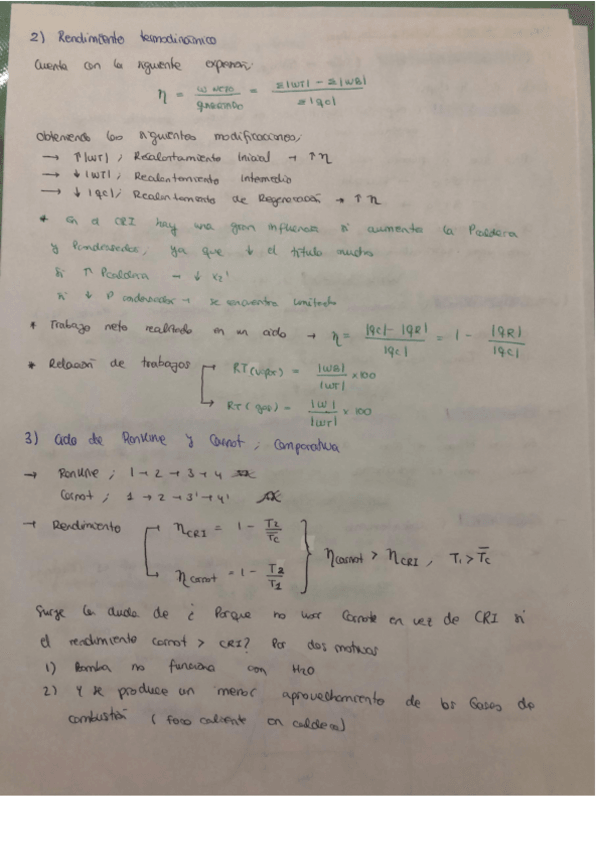 2) Rendimiento termodinámico
Cuenta con la siguiente expresión;
η = W NETO / q APORTADO = Σ|WT| - Σ|WB| / Σ|qc|
Obteniendo las siguientes modificaciones;
→ ↑|WT|; Recalentamiento Inicial → ↑η
→ ↓|WT|; Recalentamiento Intermedio
→ ↓|qc|; Recalentamiento de Regeneración → ↑η
* En el CRI hay una gran influencia si aumenta la Pcaldera
y Pcondensador, ya que ↓ el título mucho
Si ↑ Pcaldera → ↓ x2'
Si ↓ P condensador → se encuentra limitado
* Trabajo neto realizado en un ciclo → η = |qc| - |qR| / |qc| = 1 - |qR| / |qc|
* Relación de trabajos → RT(vapor) = |WB| / |WT| x100
→ RT(gas) = |W | / |WT| x 100
3) Ciclo de Rankine y Carnot; Comparativa
→ Rankine; 1 → 2 → 3 → 4
Carnot; 1 → 2 → 3' → 4'
→ Rendimiento → ηCRI = 1 - T2 / T̄c
→ ηcarnot = 1 - T2 / T1 } ηcarnot > ηCRI, T1 > T̄c
Surge la duda de ¿ Porque no usar Carnot en vez de CRI si
el rendimiento carnot > CRI? Por dos motivos
1) Bomba no funciona con H2O
2) Y se produce un menor aprovechamiento de los Gases de
combustión (foco caliente en caldera)